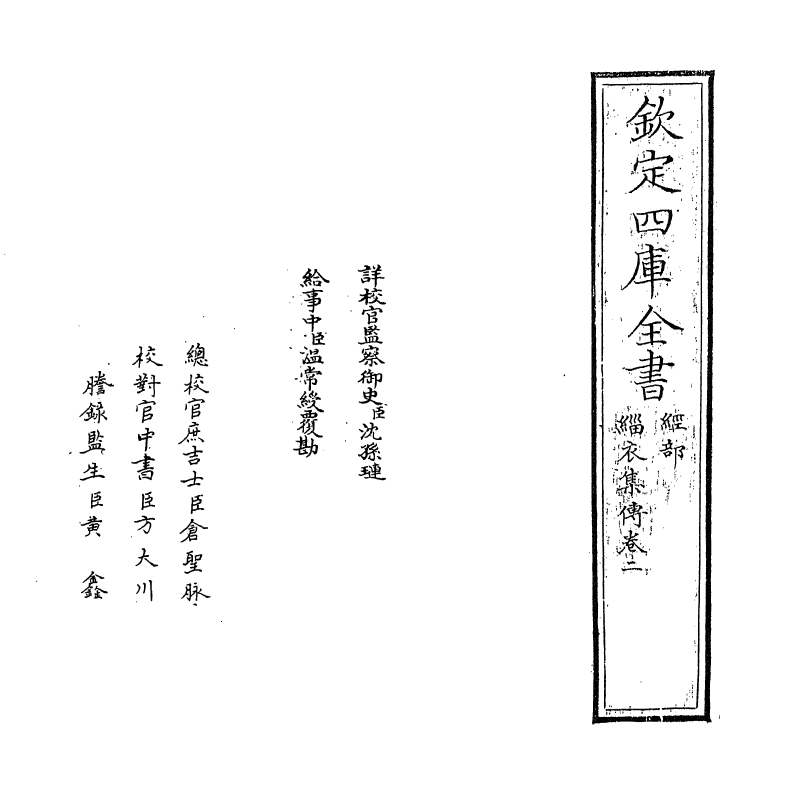 欽定四庫全書
經部
緇衣集傳卷二
詳校官監察御史臣沈孫璉
給事中臣溫常綬覆勘
總校官庶吉士臣倉聖脉
校對官中書臣方大川
謄錄監生臣黄鑫